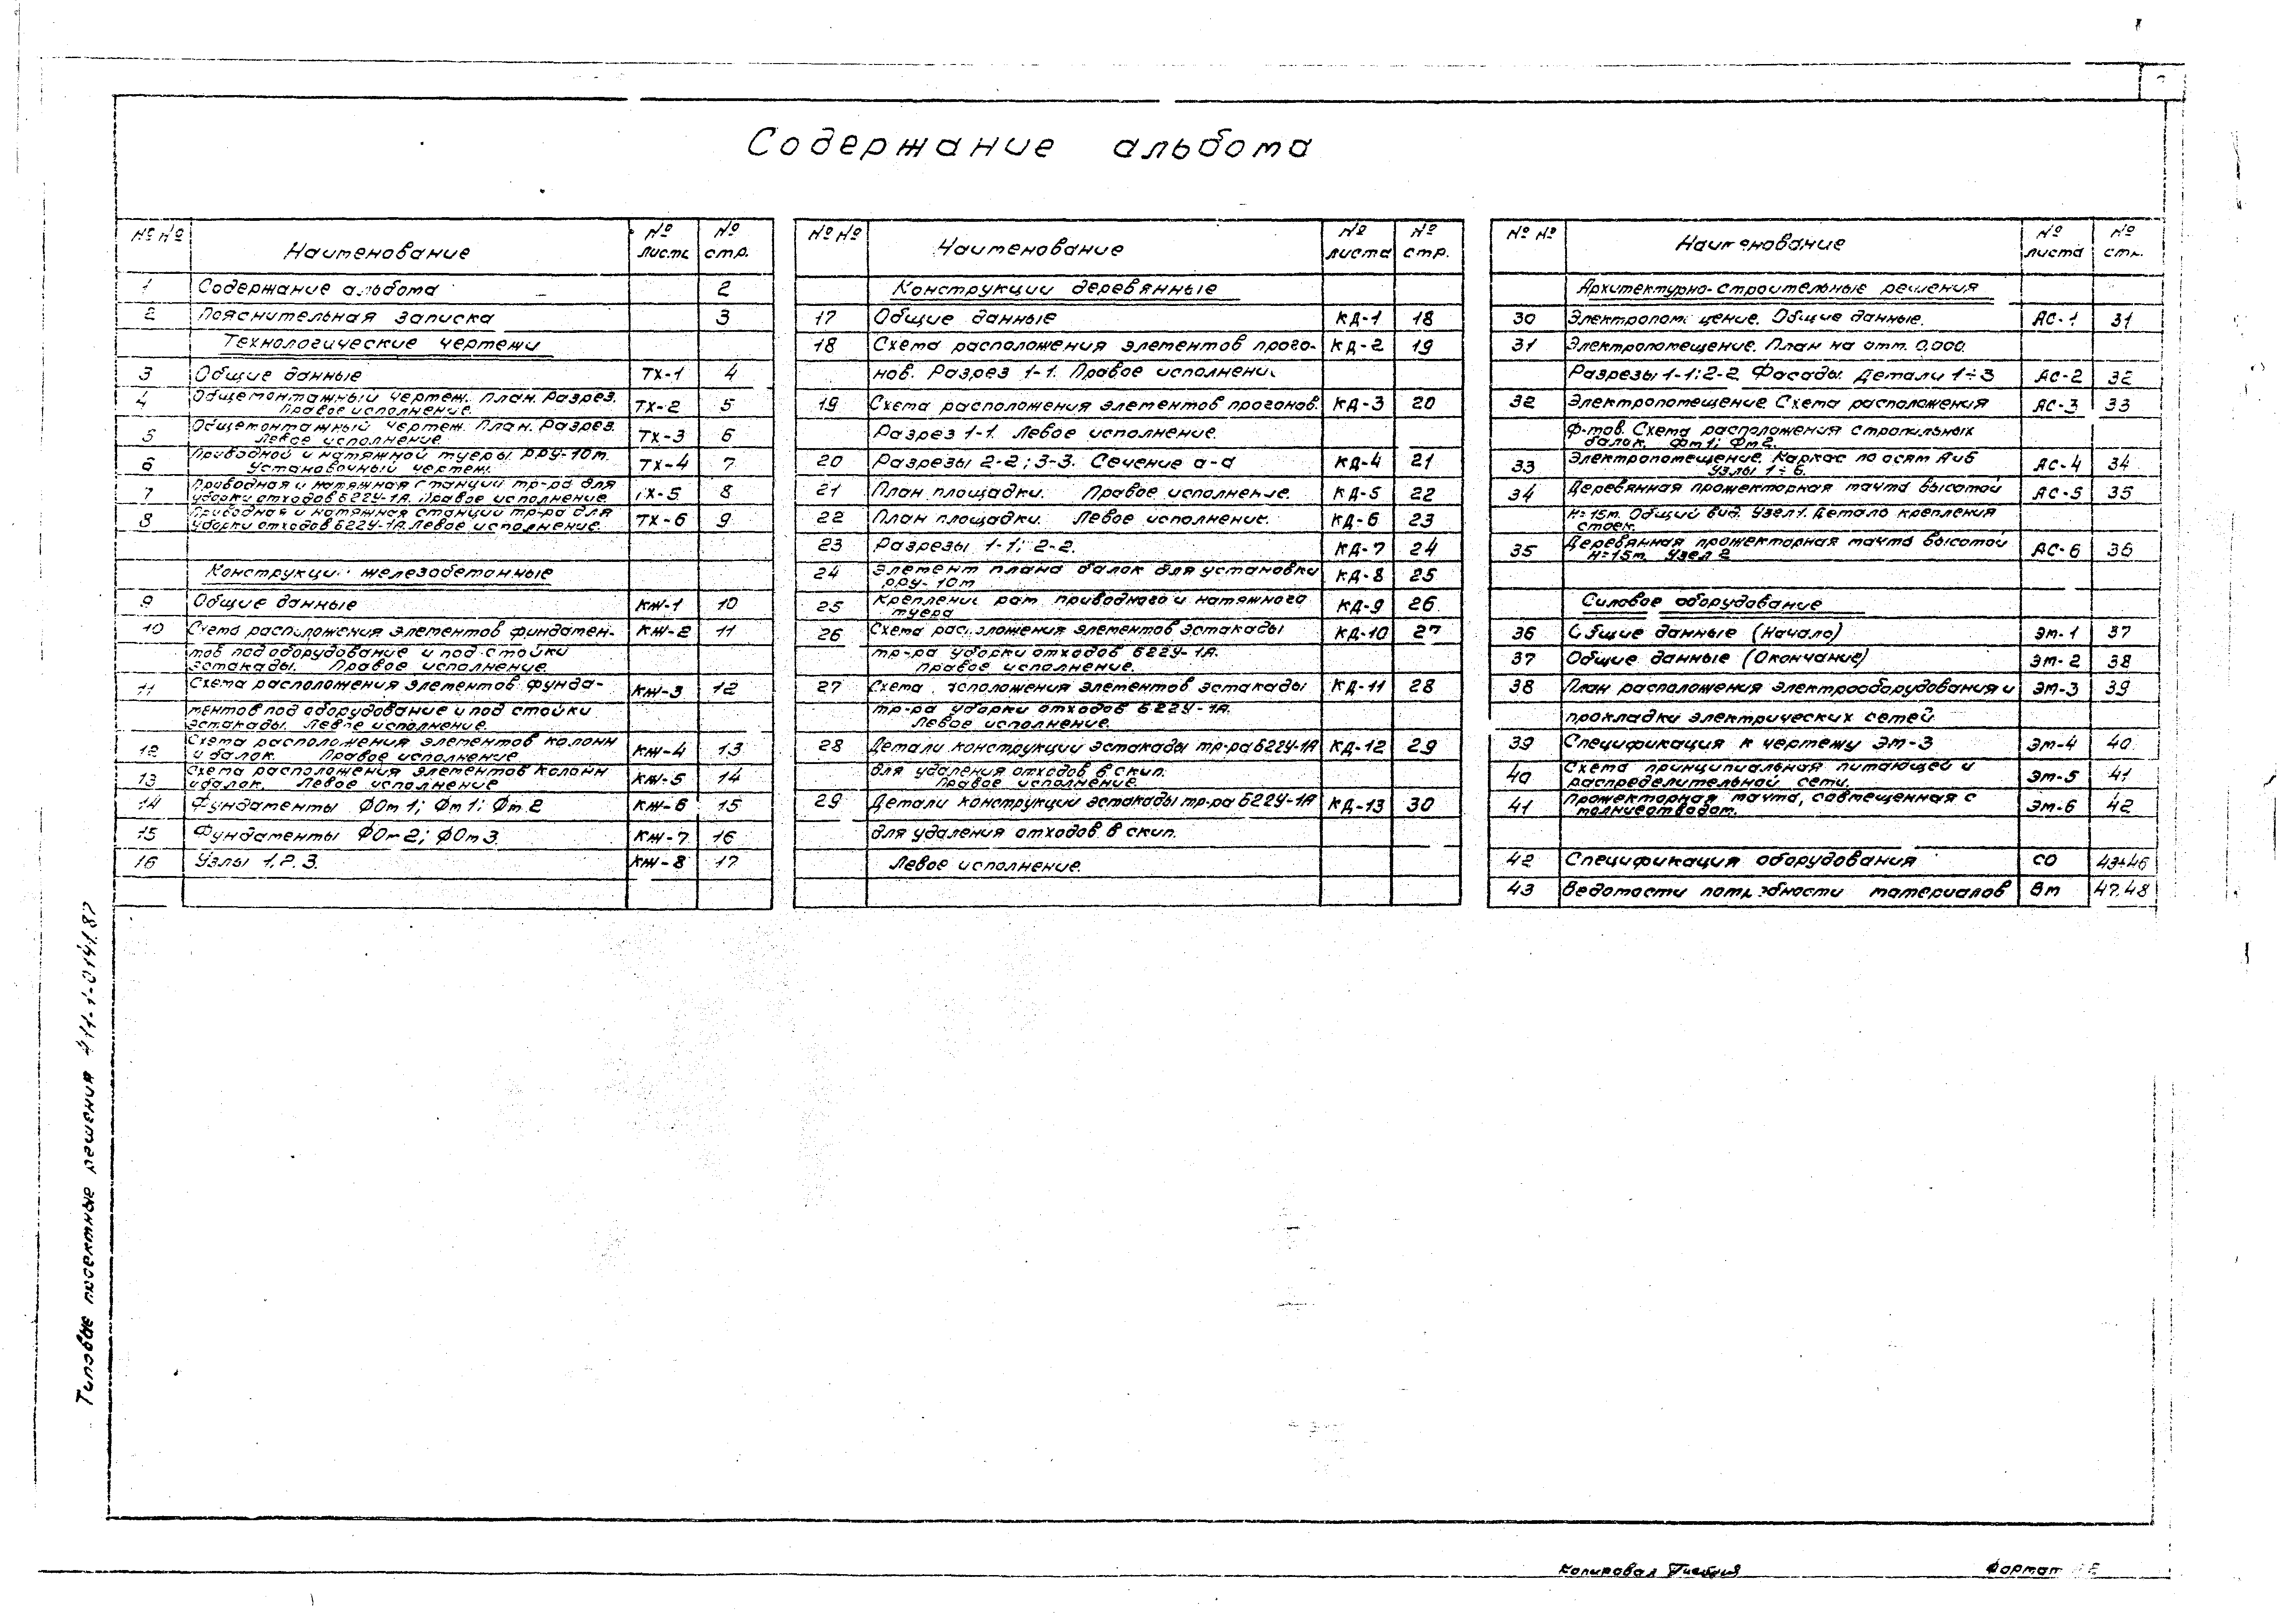 Содержание альбома
№ №
Наименование
№
листа
№
стр.
1 Содержание альбома 2
2 Пояснительная записка 3
Технологические чертежи
3 Общие данные ТХ-1 4
4 Общемонтажный чертеж. План. Разрез.
Правое исполнение. ТХ-2 5
5 Общемонтажный чертеж. План. Разрез.
Левое исполнение. ТХ-3 6
6 Приводной и натяжной туеры РРУ-10м.
Установочный чертеж. ТХ-4 7
7 Приводная и натяжная станции тр-ра для
уборки отходов Б22У-1А. Правое исполнение. ТХ-5 8
8 Приводная и натяжная станции тр-ра для
уборки отходов Б22У-1А. Левое исполнение. ТХ-6 9
Конструкции железобетонные
9 Общие данные КЖ-1 10
10 Схема расположения элементов фундамен- КЖ-2 11
тов под оборудование и под стойки
эстакады. Правое исполнение.
11 Схема расположения элементов фунда- КЖ-3 12
ментов под оборудование и под стойки
эстакады. Левое исполнение.
12 Схема расположения элементов колонн
и балок. Правое исполнение КЖ-4 13
13 Схема расположения элементов колонн
и балок. Левое исполнение КЖ-5 14
14 Фундаменты ФОм 1; Фм 1; Фм 2 КЖ-6 15
15 Фундаменты ФОм 2; ФОм 3. КЖ-7 16
16 Узлы 1. 2. 3. КЖ-8 17
№ №
Наименование
№
листа
№
стр.
Конструкции деревянные
17 Общие данные КД-1 18
18 Схема расположения элементов прого- КД-2 19
нов. Разрез 1-1. Правое исполнение
19 Схема расположения элементов прогонов. КД-3 20
Разрез 1-1. Левое исполнение.
20 Разрезы 2-2; 3-3. Сечение а-а КД-4 21
21 План площадки. Правое исполнение. КД-5 22
22 План площадки. Левое исполнение. КД-6 23
23 Разрезы 1-1; 2-2. КД-7 24
24 Элемент плана балок для установки
РРУ-10м КД-8 25
25 Крепление рам приводного и натяжного
туера КД-9 26
26 Схема расположения элементов эстакады КД-10 27
тр-ра уборки отходов Б22У-1А.
Правое исполнение.
27 Схема расположения элементов эстакады КД-11 28
тр-ра уборки отходов Б22У-1А.
Левое исполнение.
28 Детали конструкции эстакады тр-ра Б22У-1А КД-12 29
для удаления отходов в скип.
Правое исполнение.
29 Детали конструкции эстакады тр-ра Б22У-1А КД-13 30
для удаления отходов в скип.
Левое исполнение.
№ №
Наименование
№
листа
№
стр.
Архитектурно-строительные решения
30 Электропомещение. Общие данные. АС-1 31
31 Электропомещение. План на отм. 0.000.
Разрезы 1-1; 2-2. Фасады. Детали 1÷3 АС-2 32
32 Электропомещение. Схема расположения АС-3 33
ф-тов. Схема расположения стропильных
балок. Фм1; Фм2.
33 Электропомещение. Каркас по осям А и Б
Узлы 1÷6. АС-4 34
34 Деревянная прожекторная мачта высотой АС-5 35
Н=15м. Общий вид. Узел 1. Детало крепления
стоек.
35 Деревянная прожекторная мачта высотой
Н=15м. Узел 2 АС-6 36
Силовое оборудование
36 Общие данные (Начало) ЭМ-1 37
37 Общие данные (Окончание) ЭМ-2 38
38 План расположения электрооборудования и ЭМ-3 39
прокладки электрических сетей.
39 Спецификация к чертежу ЭМ-3 ЭМ-4 40
40 Схема принципиальная питающей и
распределительной сети. ЭМ-5 41
41 Прожекторная мачта, совмещенная с
молниеотводом. ЭМ-6 42
42 Спецификация оборудования СО 43÷46
43 Ведомости потребности материалов ВМ 47,48
Типовые проектные решения 411-1-0141.87
Копировал
Формат